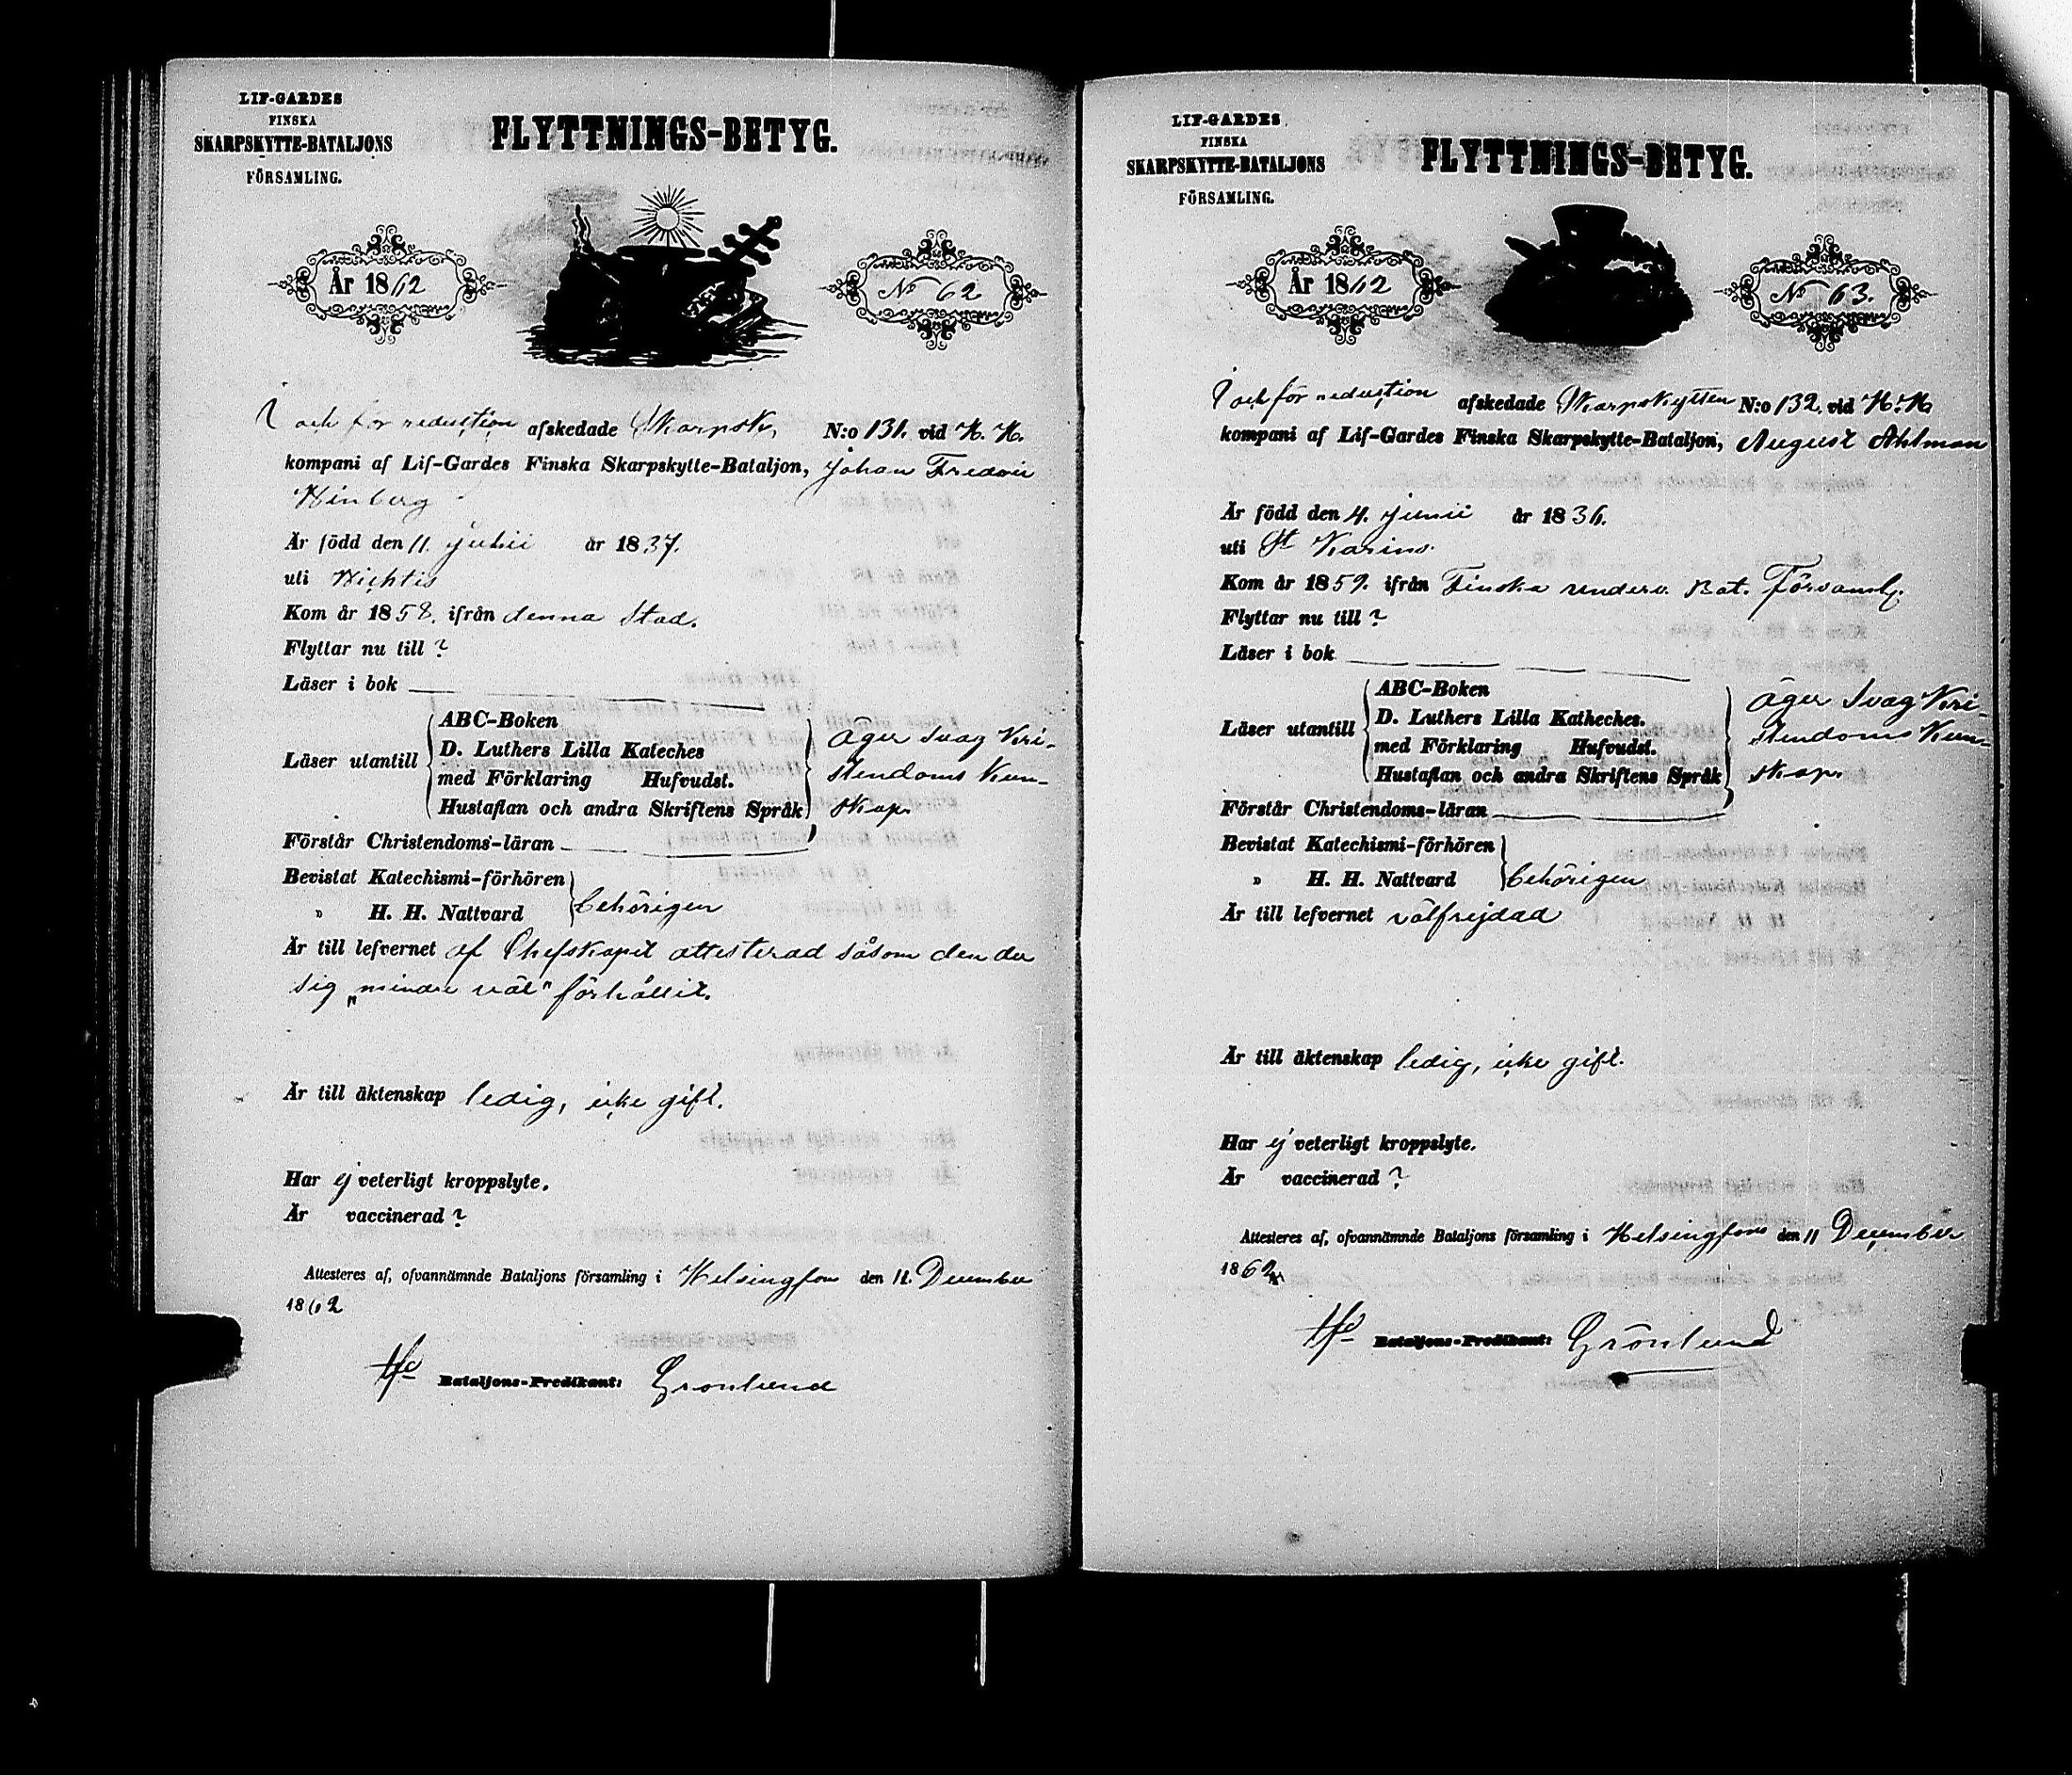 LIF-GARDES
FINSKA
SKARPSKYTTE-BATALJONS
FÖRSAMLING.
FLYTTNINGS-BETYG.
År 1862
No 62
I och för reduction afskedade Skarpsk. N:o 131. vid H. K.
kompani af Lif-Gardes Finska Skarpskytte-Bataljon, Johan Fredric
Hinberg
Är född den 11. Julii år 1837.
uti Wichtis
Kom år 1858. ifrån denna Stad.
Flyttar nu till ?
Läser i bok
Läser utantill
ABC-Boken
D. Luthers Lilla Kateches
med Förklaring Hufvudst.
Hustaflan och andra Skriftens Språk
Äger Svag Kri-
stendoms Kun-
skap.
Förstår Christendoms-läran
Bevistat Katechismi-förhören
" H. H. Nattvard
behörigen
Är till lefvernet af Chefskapet attesterad såsom den der
sig „mindre väl" förhållit.
Är till äktenskap ledig, icke gift.
Har ej veterligt kroppslyte.
Är vaccinerad ?
Attesteres af, ofvannämnde Bataljons församling i Helsingfors den 11. December
1862
Bataljons-Predikant: Grönlund
LIF-GARDES
FINSKA
SKARPSKYTTE-BATALJONS
FÖRSAMLING.
FLYTTNINGS-BETYG.
År 1862
No 63.
I och för reduction afskedade Skarpskytten N:o 132. vid H. K.
kompani af Lif-Gardes Finska Skarpskytte-Bataljon, August Ahlman
Är född den 4. Junii år 1836.
uti St Karins.
Kom år 1859. ifrån Finska reserv. Bat. Församl.
Flyttar nu till ?
Läser i bok
Läser utantill
ABC-Boken
D. Luthers Lilla Katheches.
med Förklaring Hufvudst.
Hustaflan och andra Skriftens Språk
äger Svag Kri-
stendoms Kun-
skap.
Förstår Christendoms-läran
Bevistat Katechismi-förhören
" H. H. Nattvard
behörigen
Är till lefvernet välfrejdad
Är till äktenskap ledig, icke gift.
Har ej veterligt kroppslyte.
Är vaccinerad ?
Attesteres af, ofvannämnde Bataljons församling i Helsingfors den 11 December
1862
Bataljons-Predikant: Grönlund